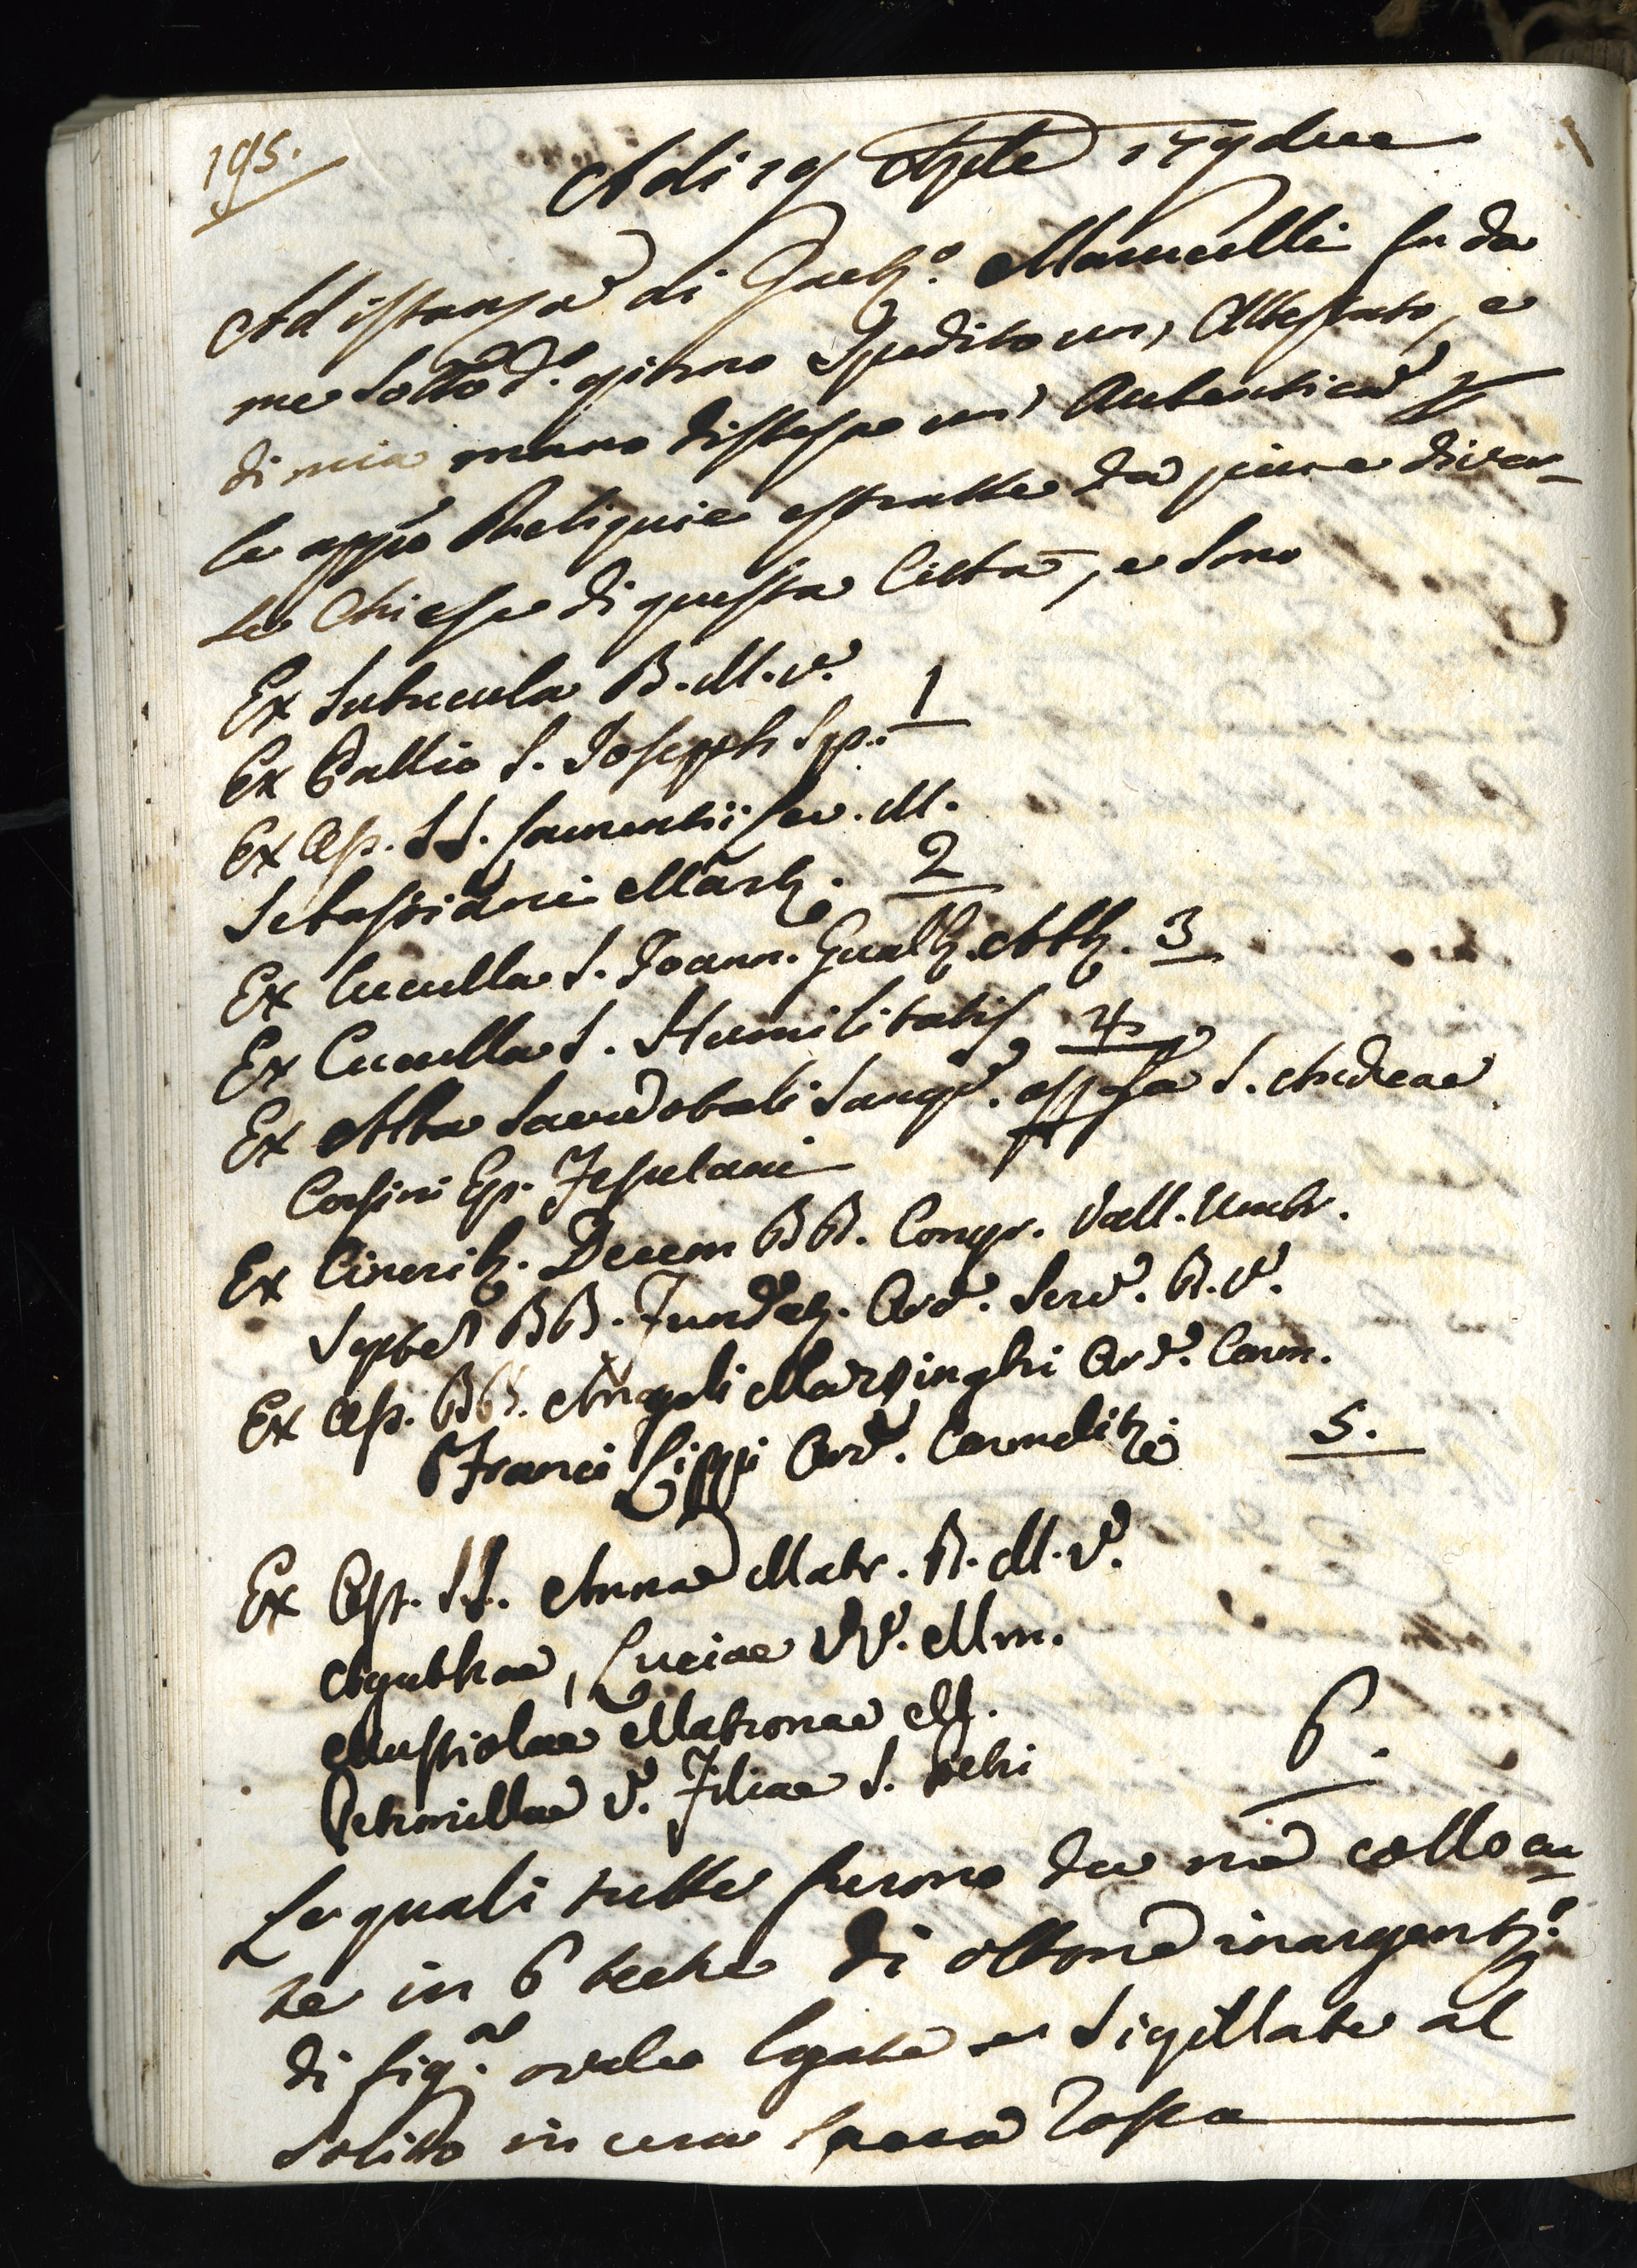 195.
Adi 19 Aple 179due
Ad istanza di Gaet.º Marucelli fu da
me sotto d.º giorno Spedito un' Attestato, e
di mia mano distese un' Autentica p
le app.e Reliquie estratte da piu e diver-
se Chiese di questa Citta, e sono
Ex Subucula B. M. V.
Ex Pallio S. Joseph Sp. 1
Ex Oss. SS. Laurentii Lev. M.
Sebastiani Mart. 2
Ex Cuculla S. Joann. Gualb. Abb. 3
Ex Cuculla S. Humilitatis 4
Ex Alba Sacerdotali Sang. S. Andreae
Corsini Ep. Fesulani
Ex Cinerib. Decem BB. Congr. Vall. Umbr.
Septem BB. Fundat. Ord. Serv. B. V.
Ex Oss. BB. Angeli Mazzinghi Ord. Carm.
Franci Lippi Ord. Carmelit. 5.
Ex Oss. SS. Annae Matr. B. M. V.
Agathae, Luciae VV. Mm.
Mustiolae Matronae M.
Petronillae V. Filiae S. Petri 6.
Le quali tutte furono da me colloca-
te in 6 teche di ottone inargent.e
di fig.a ovale legate e Sigillate al
Solito in cera Lacca Rossa